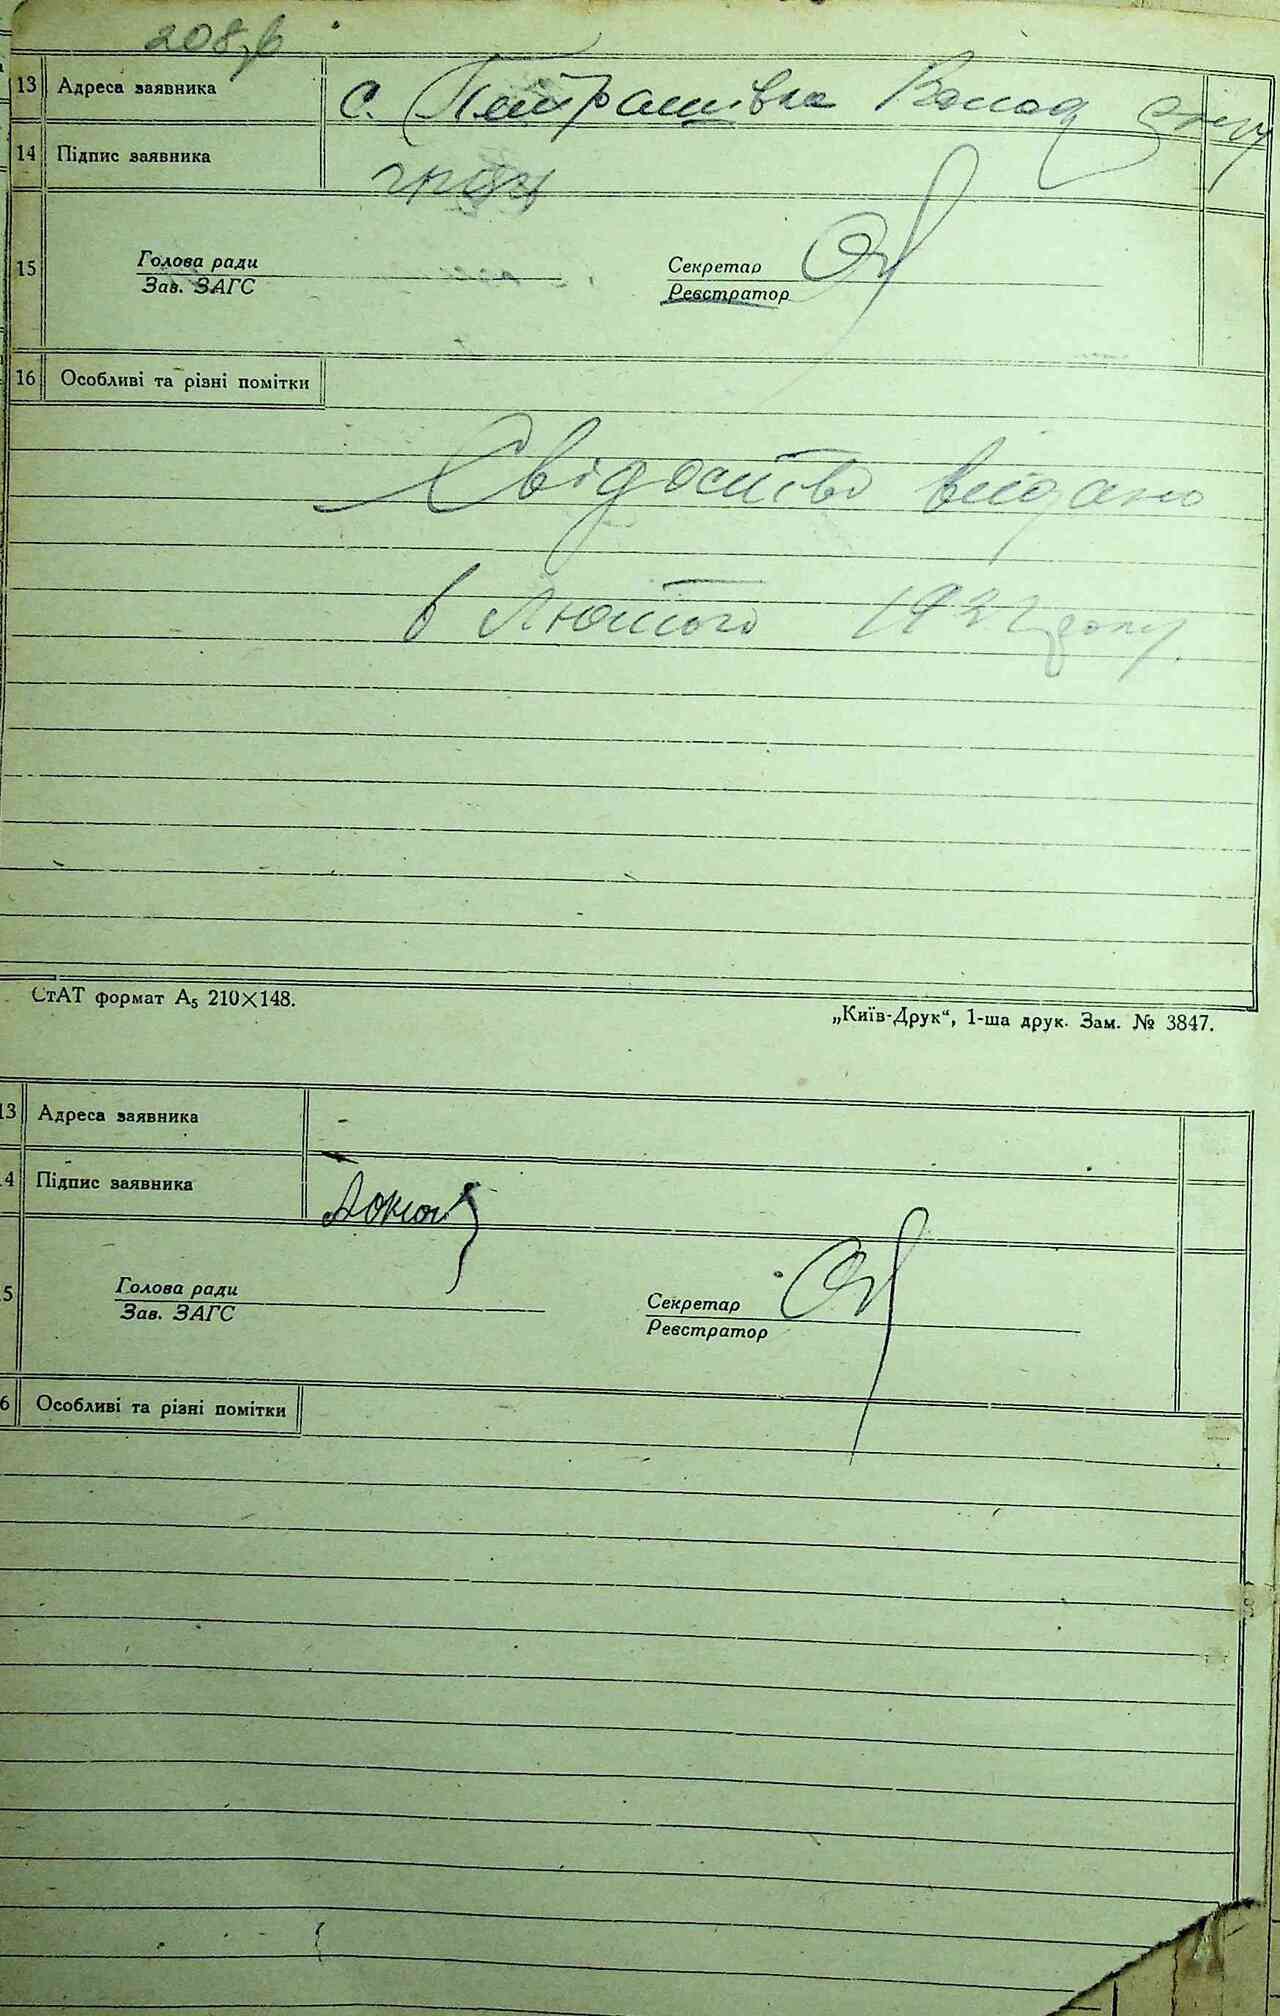 208
13 Адреса заявника с. Петрашівка Волод
14 Підпис заявника
15 Голова ради
Зав. ЗАГС
Секретар
Реєстратор
16 Особливі та різні помітки
Свідоство видано
6 Лютого 193 року
СтАТ формат А₅ 210×148.
„Київ-Друк“, 1-ша друк. Зам. № 3847.
13 Адреса заявника -
4 Підпис заявника
5 Голова ради
Зав. ЗАГС
Секретар
Реєстратор
6 Особливі та різні помітки